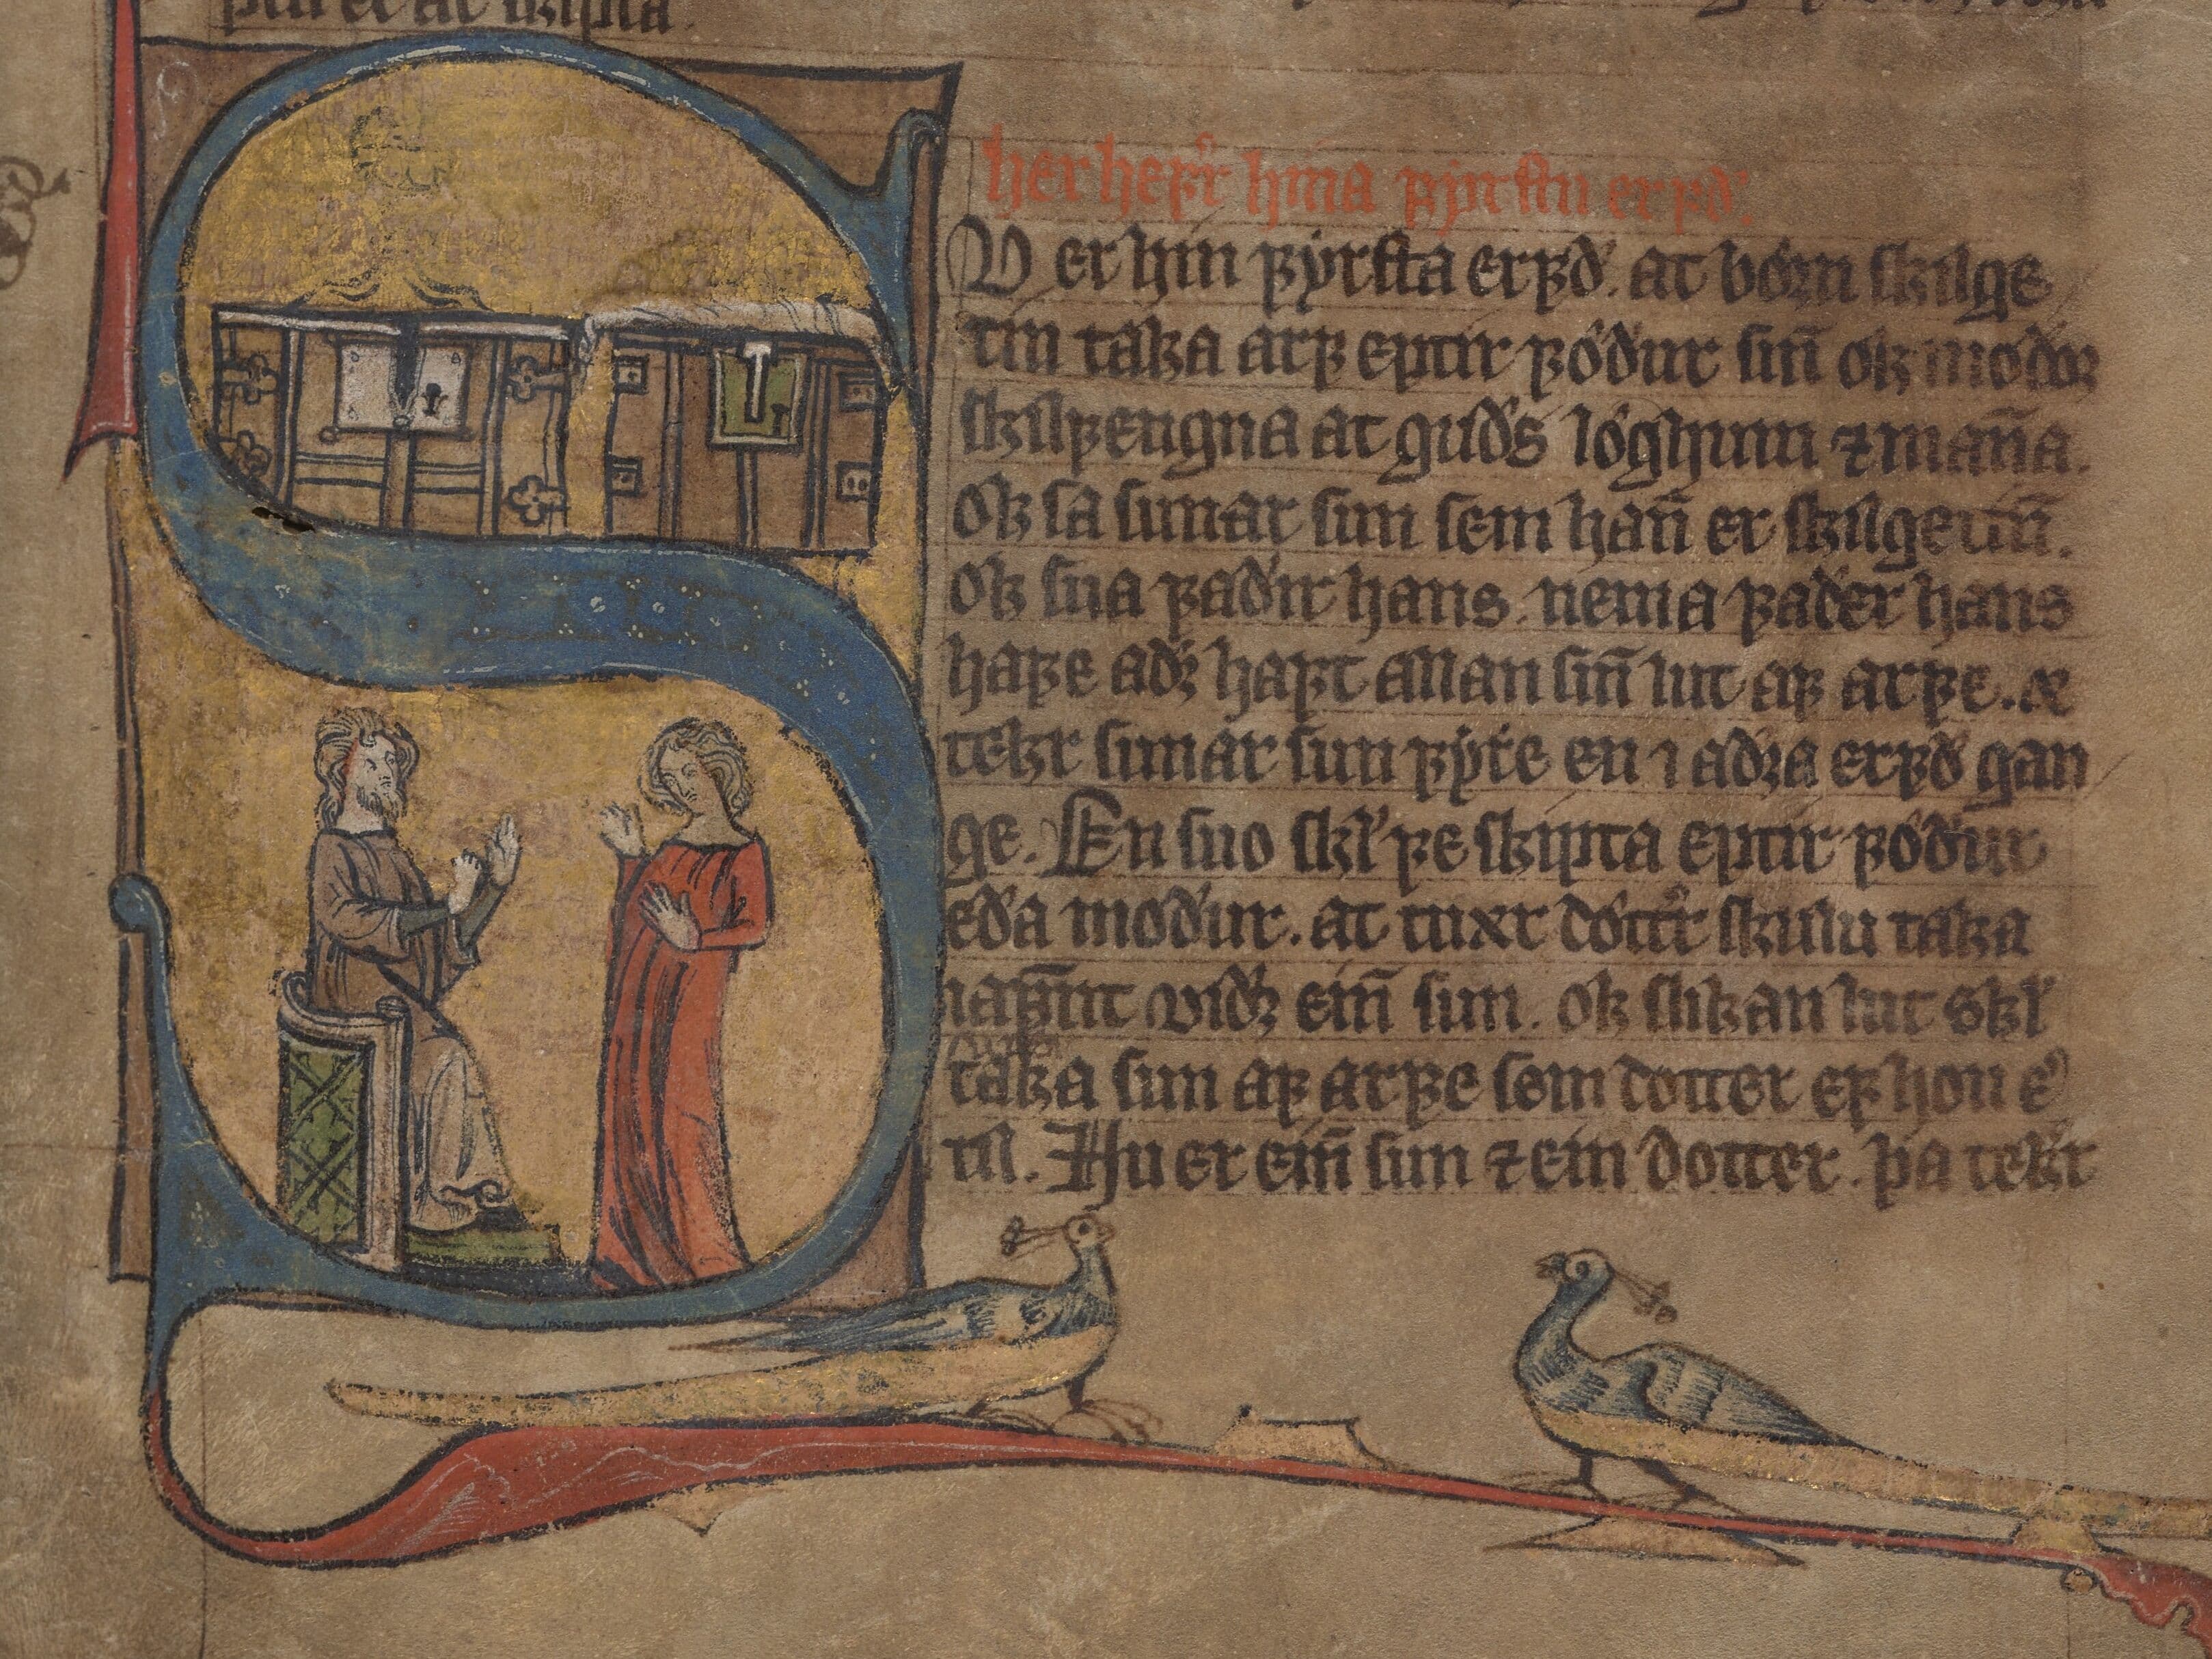 her hefr hina fyrstu erfð.
V er hin fyrsta erfð. at bórn skilge
tin taka arf eptir fóður sin̄ ok moðor
skilfengna at guðs lóghum ⁊ man̄a.
Ok sa sunar sun sem han̄ er skilgetin̄.
Ok sua faðir hans. nema faðer hans
hafe aðꝛ haft allan sin̄ lut af arfe. ⁊
tekr sunar sun fyꝛe en i aðꝛa erfð gan
ge. En suo skl' fe skipta eptir fóður
eða moður. at tuær dóttr skulu taka
iafmt viðꝛ ein̄ sun. ok slikan lut skl'
taka sun af arfe sem dotter ef hon e'
til. Hu er ein̄ sun ⁊ ein dotter. þa tekr